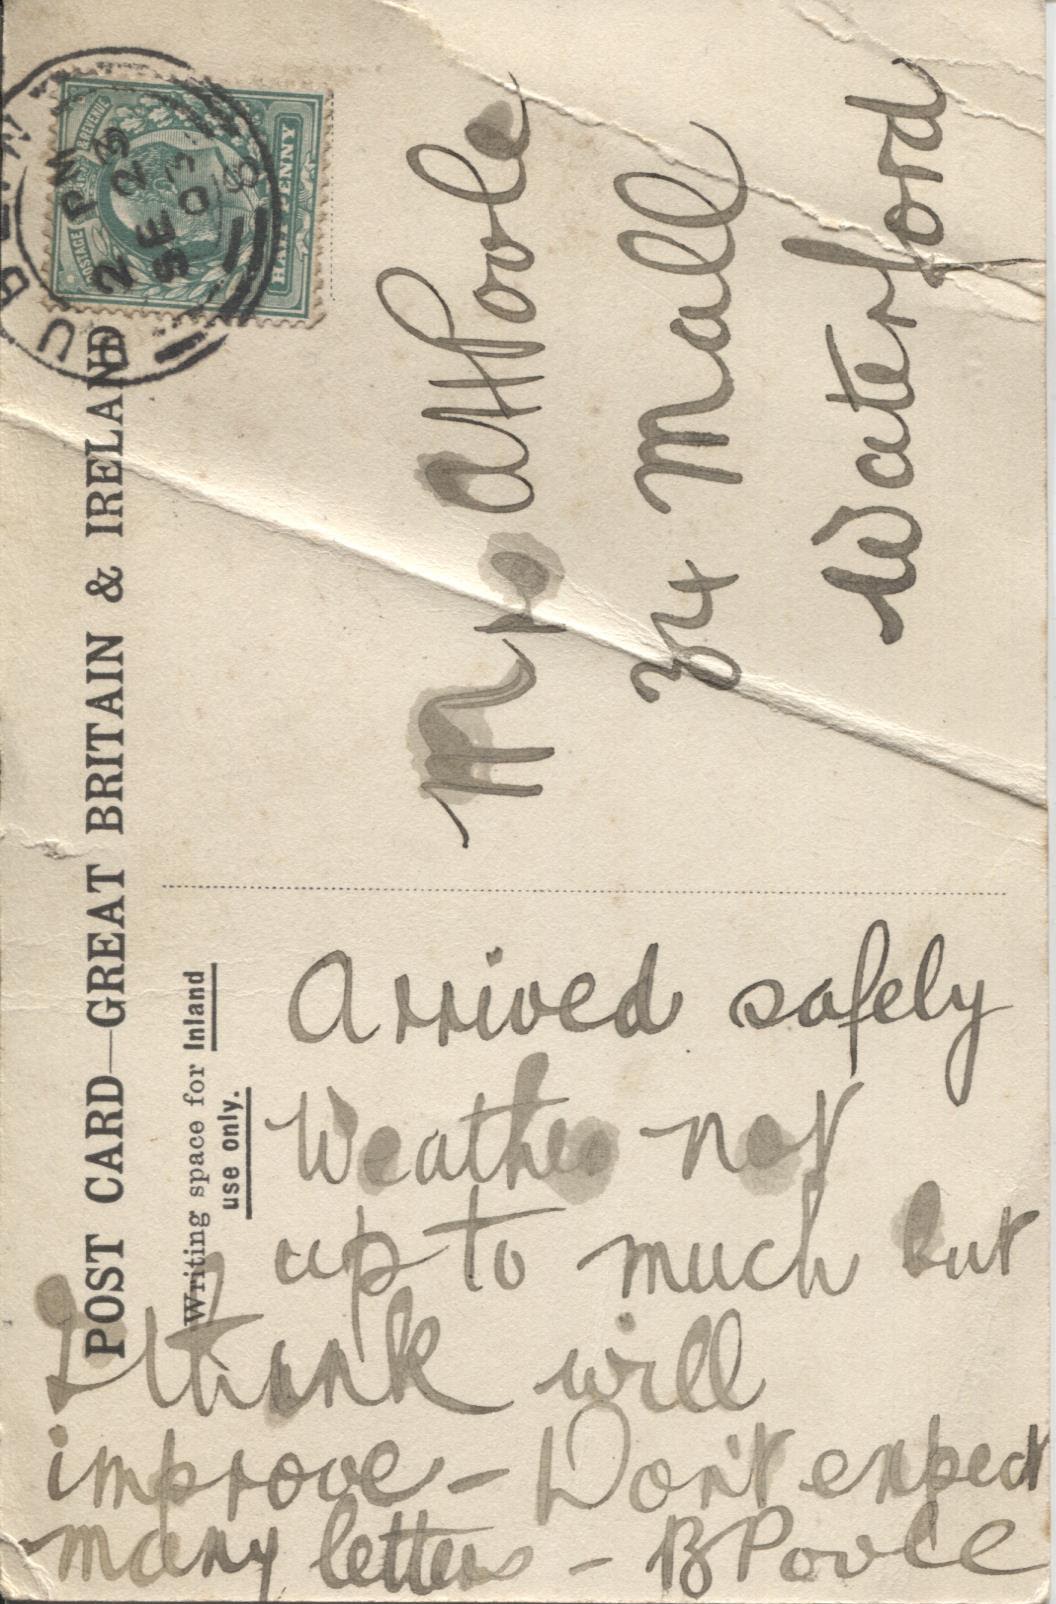 POST CARD—GREAT BRITAIN & IRELAND
Writing space for Inland
use only.
POSTAGE & REVENUE
HALFPENNY
2 PM
SE 23
03
Mrs AHPoole
34 Mall
Waterford
Arrived safely
Weather not
up to much but
I think will
improve – Don't expect
many letters – B Poole